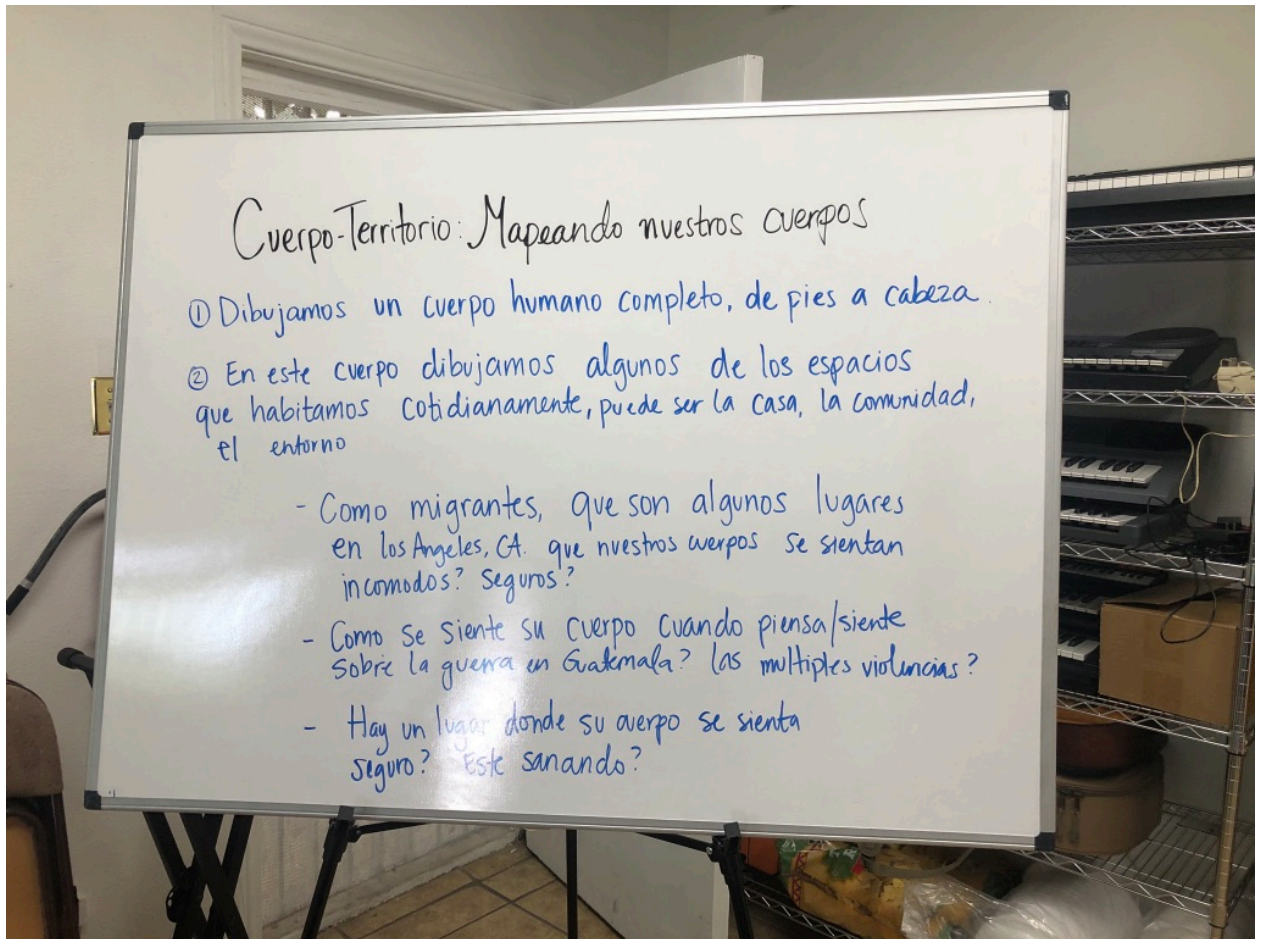 Cuerpo-Territorio: Mapeando nuestros cuerpos
① Dibujamos un cuerpo humano completo, de pies a cabeza.
② En este cuerpo dibujamos algunos de los espacios
que habitamos cotidianamente, puede ser la casa, la comunidad,
el entorno
- Como migrantes, que son algunos lugares
en los Angeles, CA. que nuestros cuerpos se sientan
incomodos? seguros?
- Como se siente su cuerpo cuando piensa/siente
sobre la guerra en Guatemala? las multiples violencias?
- Hay un lugar donde su cuerpo se sienta
seguro? Este sanando?